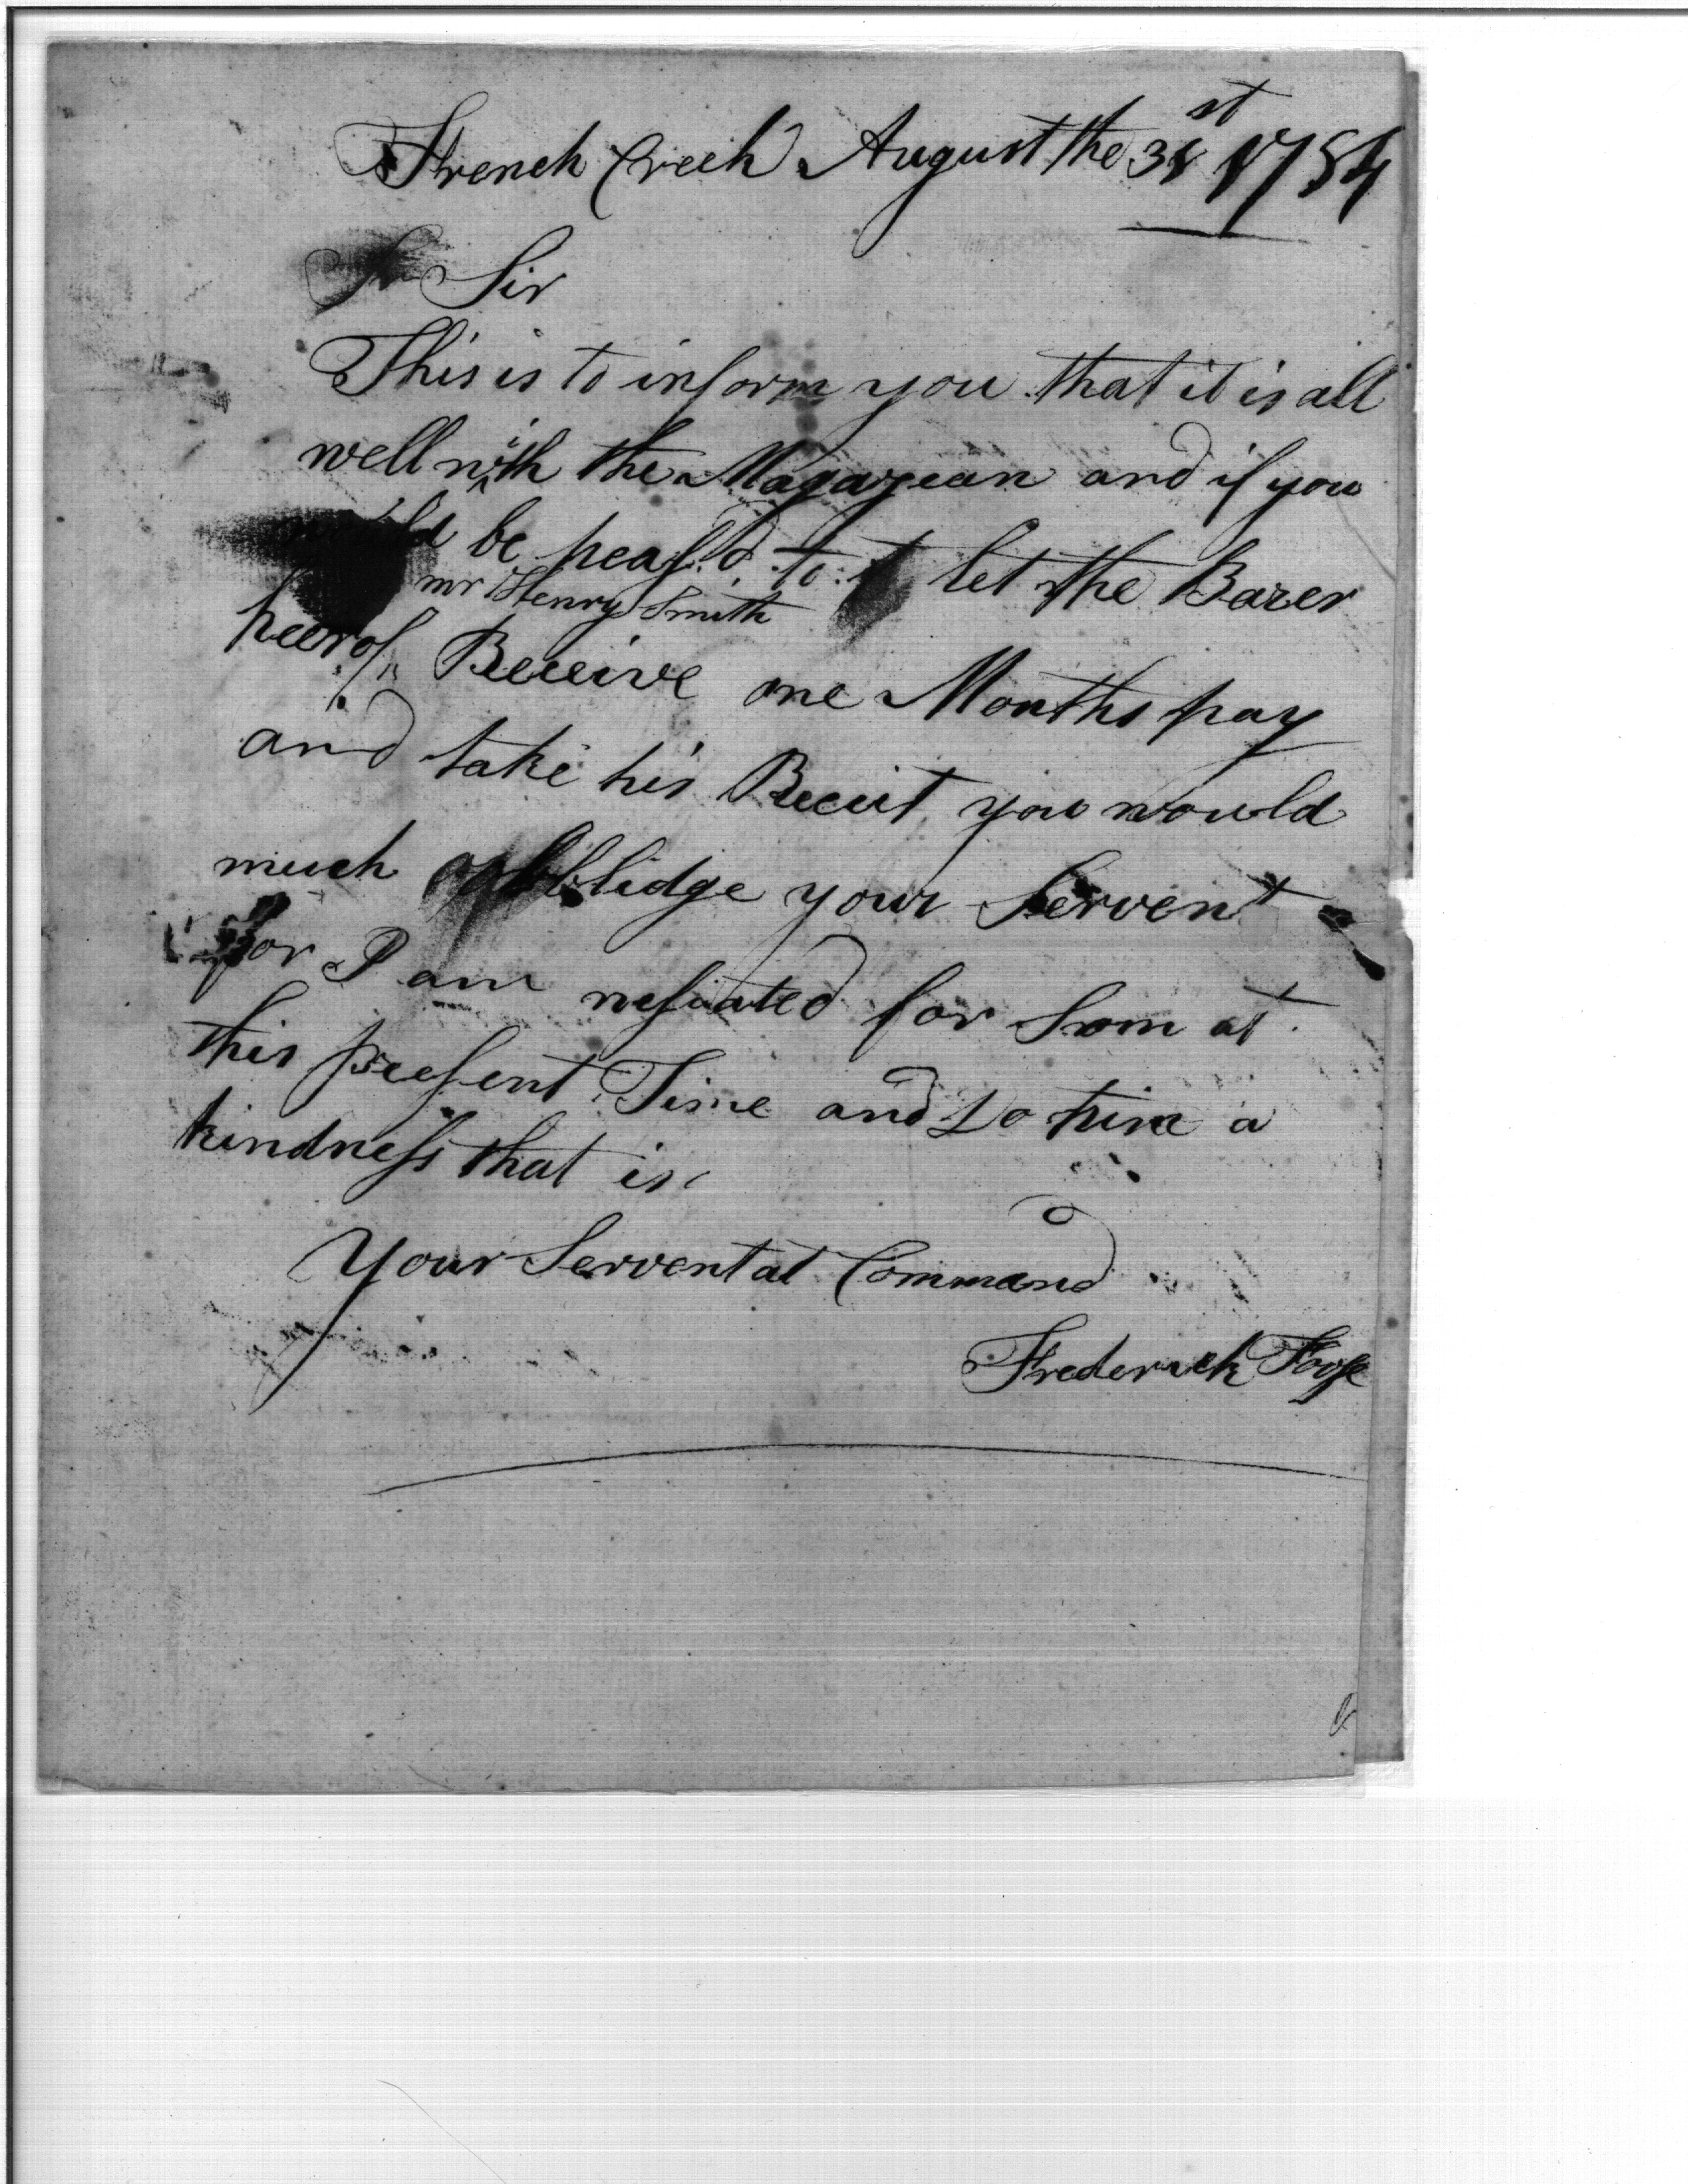 French Creek August the 31st 1784
Sir
This is to inform you that it is all
well with the Magazean and if you
would be peasd to let the Barer
mr Henry Smith
heerof Receive one Months pay
and take his Receit you would
much obblidge your Servent
for I am nesciated for Som at
this present Time and Do him a
kindness that is
Your Servent at Command
Frederick Foose